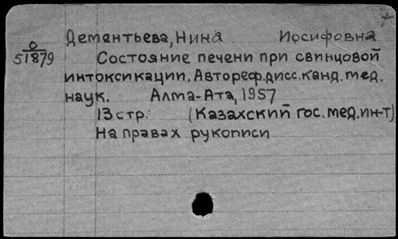 Дементьева, Нина Иосифовна
О
51879
Состояние печени при свинцовой
интоксикации. Автореф. дисс. канд. мед.
наук. Алма-Ата, 1957
13 стр. (Казахский гос. мед. ин-т)
На правах рукописи